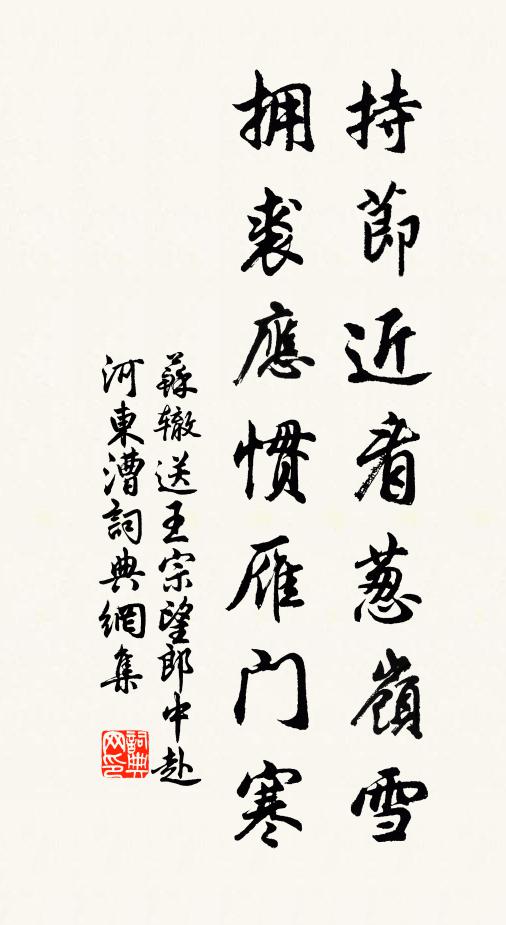 持節近看葱嶺雪
拥裘應慣雁门寒
蘇辙送王宗望郎中赴
河東漕詞典網集
詞典网印